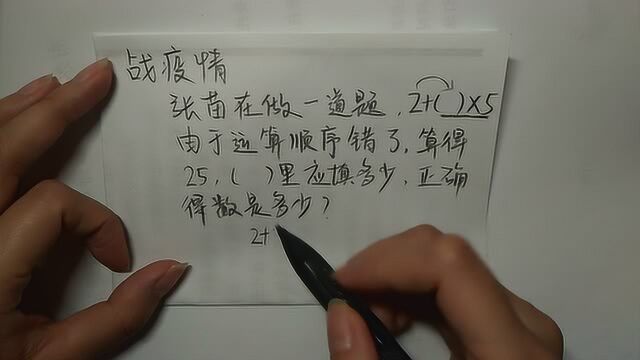 战疫情
张苗在做一道题，2+( )×5
由于运算顺序错了，算得
25，( )里应填多少，正确
得数是多少？
2+